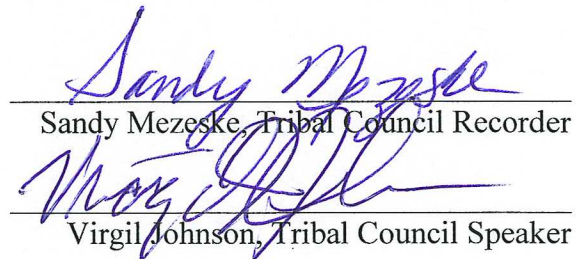 Sandy Mezeske
Sandy Mezeske, Tribal Council Recorder
Virgil Johnson, Tribal Council Speaker